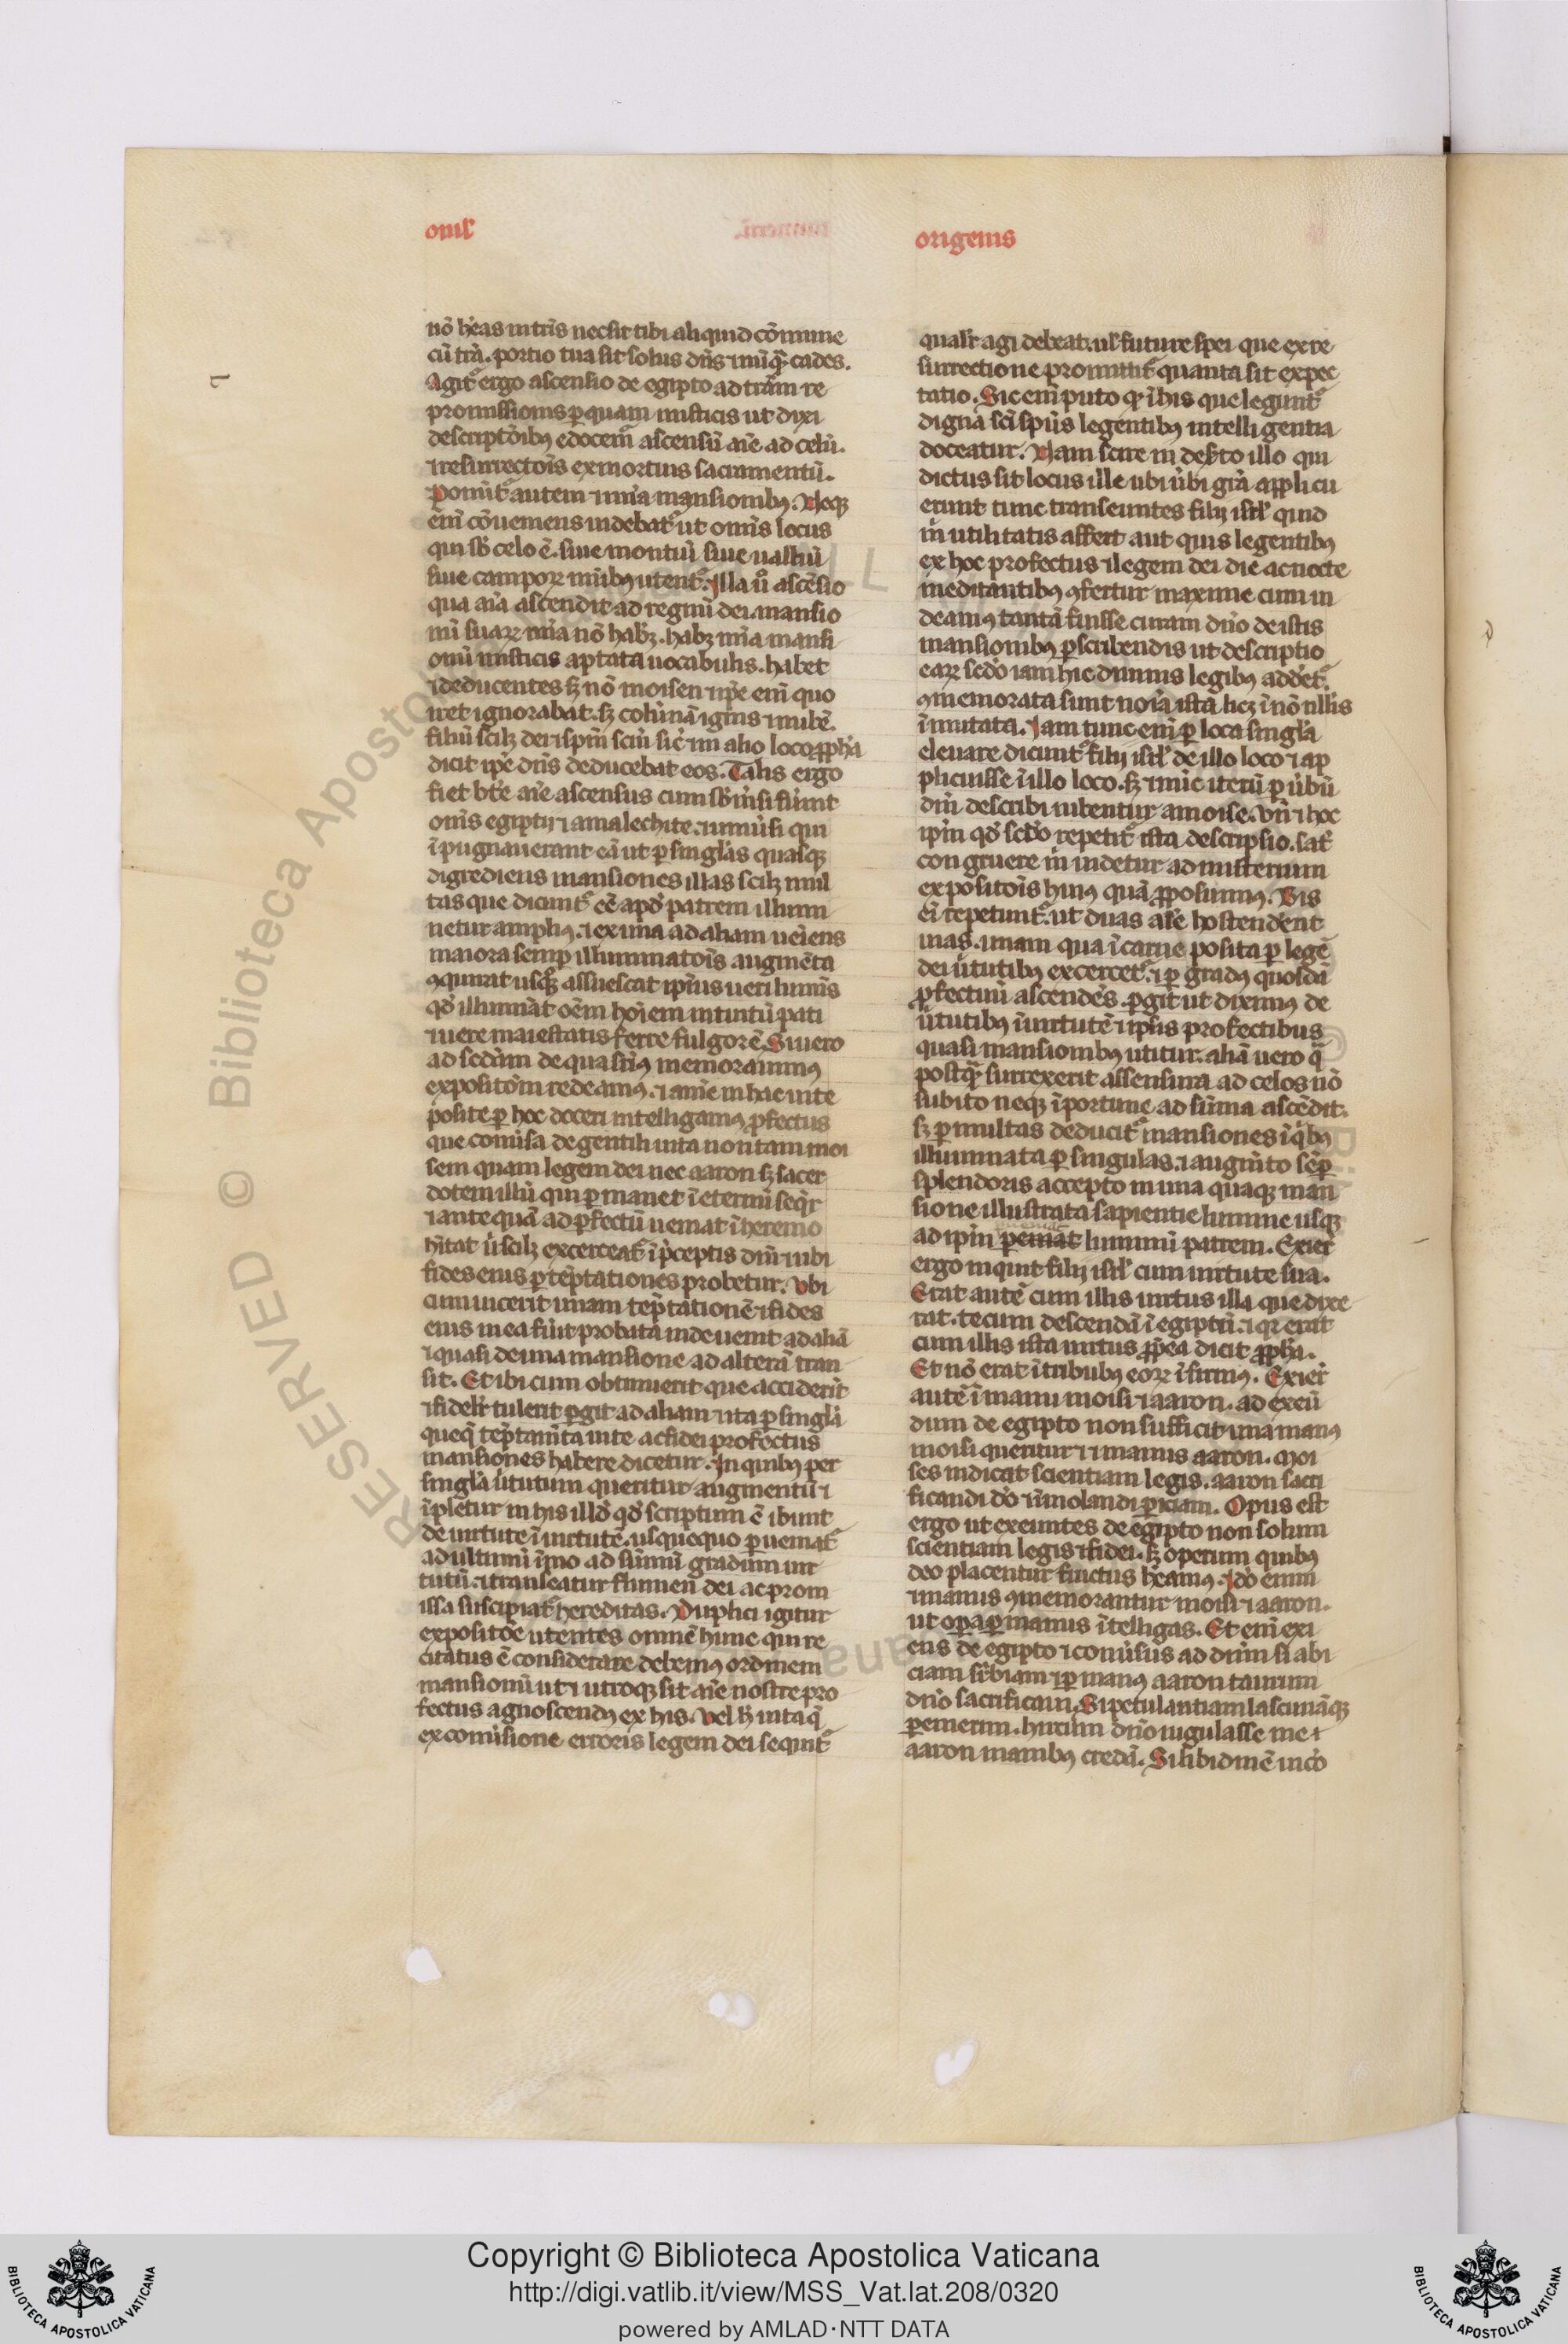 omīl'
origenis
nō hēas in tr̄is nec sit tibi aliquid cōmune
cū tr̄a. portio tua sit solus dn̄s ⁊ nūq̄ cades.
Agit᷑ ergo ascensio de egipto ad trām re
promissionis per quam misticis ut dixi
descriptōibꝫ edocem᷑ ascensū aīe ad celū.
⁊ resurrectōis ex mortuis sacramentū.
autem
ut om̄is locus
qui sb̄ celo ē. siue montiū siue ualliū
qua aīa ascendit ad regnū dei. mansio
onū misticis aptata uocabulis. habet
⁊ deducentes sꝫ nō moisen ⁊ ip̄e enī quo
iret ignorabat. sꝫ colūnā ignis ⁊ nubē.
dicit ip̄e dn̄s deducebat eos. Talis ergo
om̄s egiptij ⁊ amalechite. ⁊ uniūsi qui
īpugnauerant eā ut per singlās quasqꝫ
digrediens mansiones illas scilꝫ mul
tas que dicunt᷑ eē apd̄ patrem illumi
netur amplius. ⁊ ex una ad aliam ueīens
maiora semp̄ illuminatōis augmēta
qd̄ illumīat om̄em hoīem intuitū pati
⁊ uere maiestatis ferre fulgorē. Si uero
ad sedam de qua sup̄ius memorauimꝰ
expositōm redeamꝰ. ⁊ aīme in hac uite
posite per hoc doceri intelligamꝰ profectus
que conūsa de gentili uita non tam moi
sem quam legem dei nec aaron sꝫ sacer
dotem illū qui permanet ī eternū seqr̄
⁊ ante quā ad perfectū ueniat ī heremo
fides eius per tēptationes probetur. Ubi
cum uicerit unam temptationē ⁊ fides
eius in ea fūit probata inde uenit ad aliā
⁊ quasi de una mansione ad alterā tran
sit. Et ibi cum obtinuerit que acciderīt
⁊ fidelit᷑ tulerit pergit ad aliam ⁊ ita per singla
queqꝫ tēptamīta uite ac fidei profectus
mansiones habere dicetur. In quibꝫ per
singla ūtutum queritur augmentū ⁊
īpletur in his illd̄ qd̄ scriptum ē ibunt
de uirtute ī uirtutē. usquequo perueniat᷑
ad ultimū īmo ad sūmū gradum uir
tutū. ⁊ transeatur flumen dei ac prom
issa suscipiat᷑ hereditas. Duplici igitur
expositōe utentes omnē hunc qui re
citatus ē considerare debemꝰ ordinem
mansionū ut ⁊ utroqꝫ sit aīe nostre pro
fectus agnoscendꝰ ex his. Vel h̄ uita q̄
ex conūsione erroris legem dei sequit᷑
qualit᷑ agi debeat. ul' future spei que ex re
surrectione promittit᷑ quanta sit expec
tatio. Sic enī puto qꝫ ī his que legunt᷑
dignā sc̄i sp̄us legentibꝫ intelligentia
doceatur. Nam scire in defto illo qui
dictus sit locus ille ubi ūbi grā applicu
erunt tunc transeuntes filij isrl' quid
m̄ utilitatis affert aut quis legentibꝫ
ex hoc profectus ⁊ legem dei die ac nocte
meditantibꝫ ꝯfertur maxime cum ui
deamꝰ tantā fuisse curam dn̄o de istis
mansionibꝫ perscribendis ut descriptio
earꝝ sed̄o iam hic diuinis legibꝫ addet᷑.
īmutata. Iam tunc enī per loca singla
eleuare dicunt᷑ filij isrl' de illo loco ⁊ ap
plicuisse ī illo loco. sꝫ ⁊ nūc iterū per ūbū
dn̄i describi iubentur a moise. Vn̄ ⁊ hoc
ipm̄ qd̄ sed̄o repetit᷑ ista descripsio. sat᷑
congruere m̄ uidetur ad misterium
expositōis huiꝰ quā proposuimꝰ. Bis
ei repetunt᷑. ut duas aīe hostenderet
uias. unam qua ī carne posita per legē
dei ūtutibꝫ excercet᷑. ⁊ per gradꝰ quosdā
profectuū ascendēs. pergit ut diximꝰ de
ūtutibꝫ ī uirtutē ⁊ ipsis profectibus
quasi mansionibꝫ utitur. aliā uero q̄
postq̄ surrexerit assensura ad celos nō
subito neqꝫ īportune ad sūma ascēdit.
sꝫ per multas deducit᷑ mansiones ī qbꝫ
illuminata per singulas. ⁊ augmīto sēp
splendoris accepto in una quaqꝫ man
sione illustrata sapientie lumine usqꝫ
ad ipm̄ perueniat luminū patrem. Exier᷑
ergo inquit filij isrl' cum uirtute sua.
Erat autē cum illis uirtus illa que dixe
rat. tecum descendā ī egiptū. ⁊ qꝛ erat
cum illis ista uirtus propea dicit propha.
Et nō erat ī tribubꝫ eorꝝ īfirmꝰ. Exier᷑
autē ī manu moisi ⁊ aaron. ad exeū
dum de egipto non sufficit una manꝰ
moisi queritur ⁊ ⁊ manus aaron. Moi
ses indicat scientiam legis. aaron sacri
ficandi dō ⁊ īmolandi periciam. Opus est
ergo ut exeuntes de egipto non solum
scientiam legis ⁊ fidei. sꝫ operum quibꝫ
deo placentur fructus hēamꝰ. Idō enim
⁊ manus ꝯmemorantur moisi ⁊ aaron.
ut opera per manus ītelligas. Et enī exi
ens de egipto ⁊ conūsus ad dm̄ si abi
ciam sr̄biam ⁊ per manꝰ aaron taurum
dn̄o sacrificaui. Si petulantiam lasciuiāqꝫ
peremerim. hircum dn̄o iugulasse me ⁊
aaron manibꝫ credā. Si libidinē uicō
Copyright © Biblioteca Apostolica Vaticana
http://digi.vatlib.it/view/MSS_Vat.lat.208/0320
powered by AMLAD·NTT DATA
BIBLIOTECA APOSTOLICA VATICANA
BIBLIOTECA APOSTOLICA VATICANA